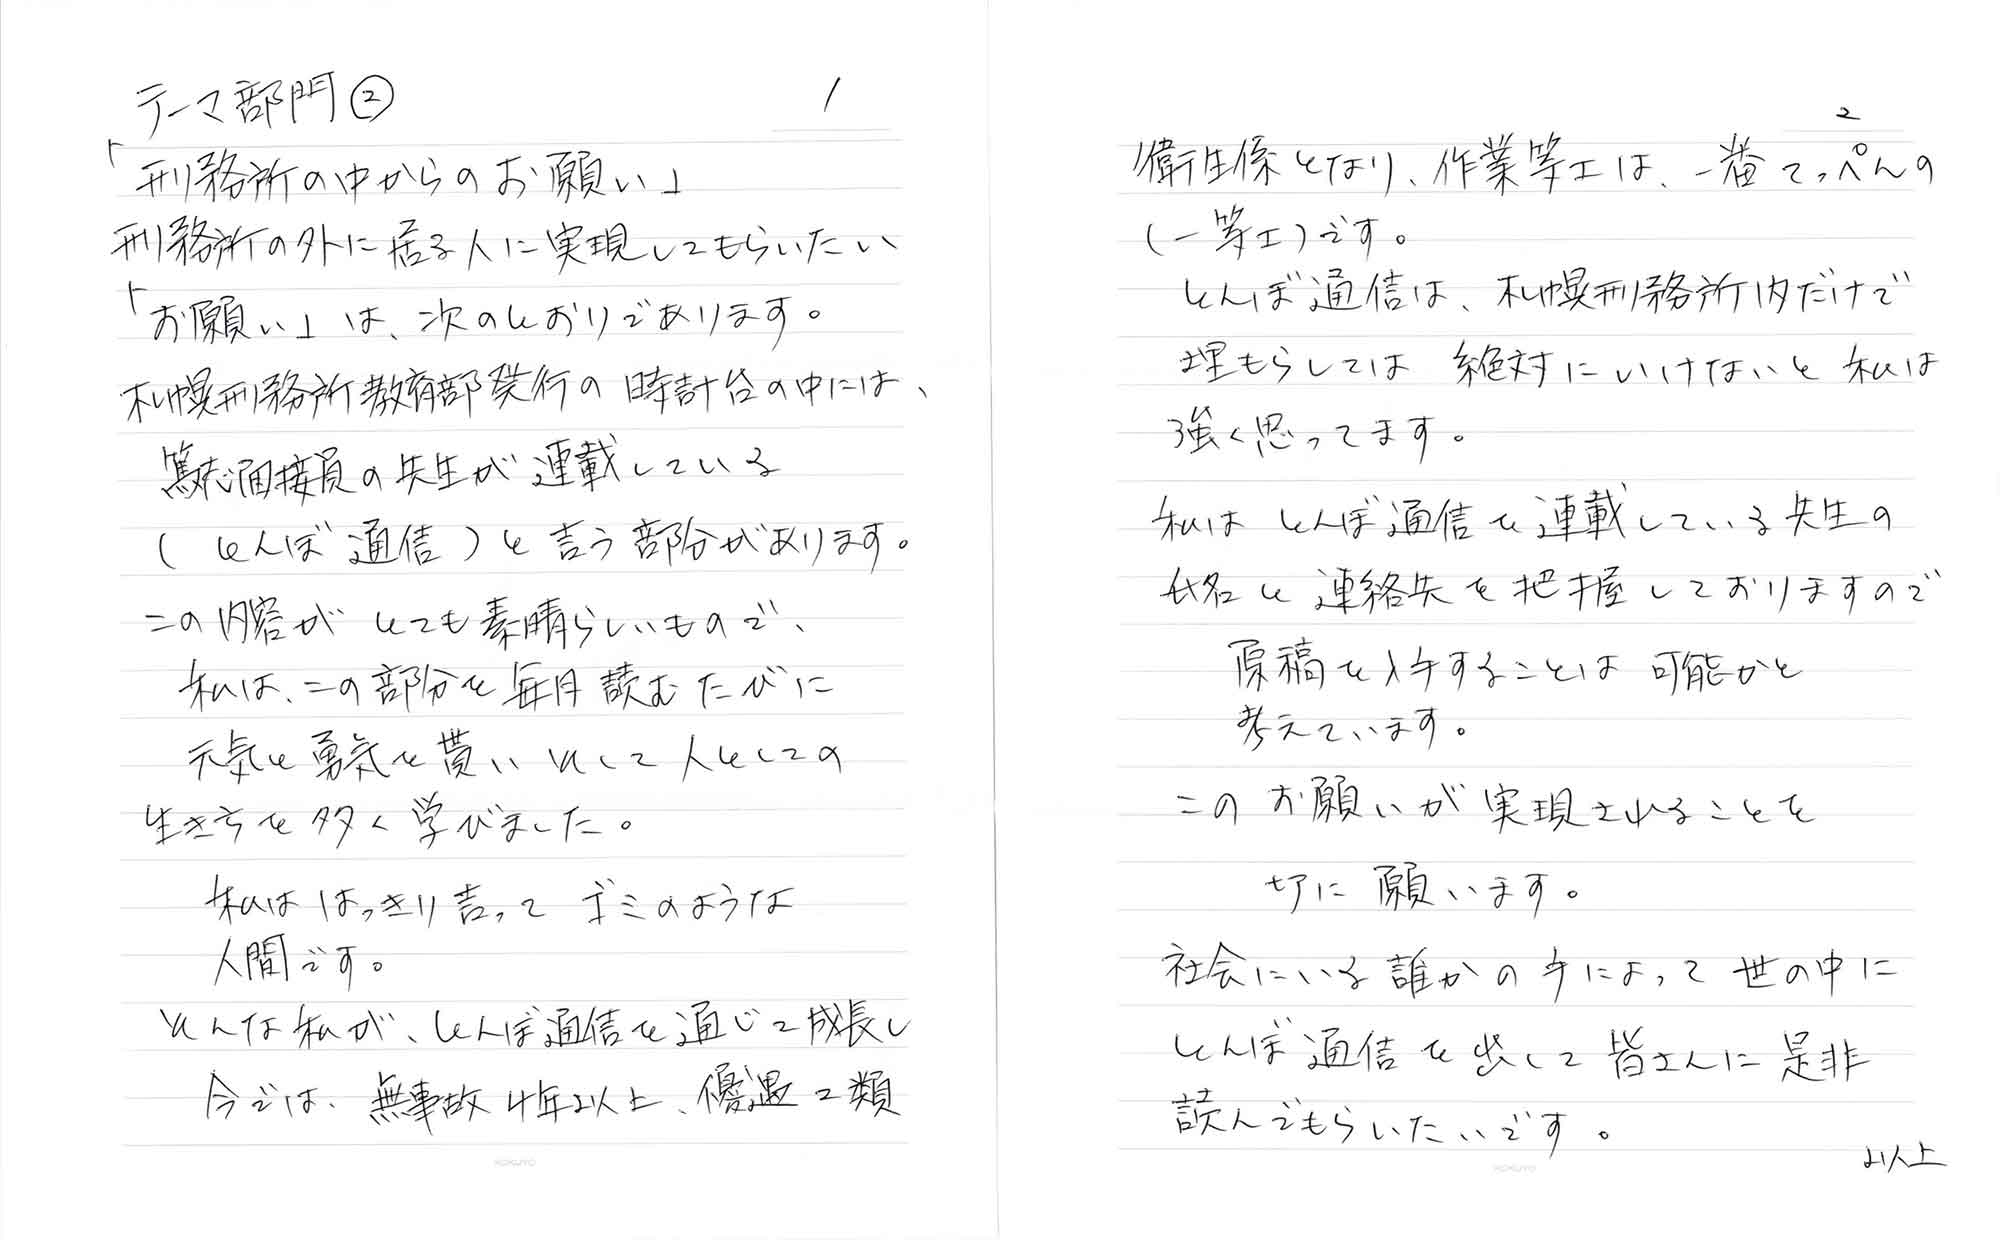 テーマ部門②
1
「刑務所の中からのお願い」
刑務所の外に居る人に実現してもらいたい
「お願い」は、次のとおりであります。
札幌刑務所教育部発行の時計台の中には、
篤志面接員の先生が連載している
(とんぼ通信)と言う部分があります。
この内容がとても素晴らしいもので、
私は、この部分を毎月読むたびに
元気と勇気を貰いそして人としての
生き方を多く学びました。
私ははっきり言ってゴミのような
人間です。
そんな私が、とんぼ通信を通じて成長し
今では、無事故4年以上、優遇2類
KOKUYO
2
衛生係となり、作業等工は、一番てっぺんの
(一等工)です。
とんぼ通信は、札幌刑務所内だけで
埋もらしては絶対にいけないと私は
強く思ってます。
私はとんぼ通信を連載している先生の
氏名と連絡先を把握しておりますので
原稿を入手することは可能かと
考えています。
このお願いが実現されることを
切に願います。
社会にいる誰かの手によって世の中に
とんぼ通信を出して皆さんに是非
読んでもらいたいです。
以上
KOKUYO